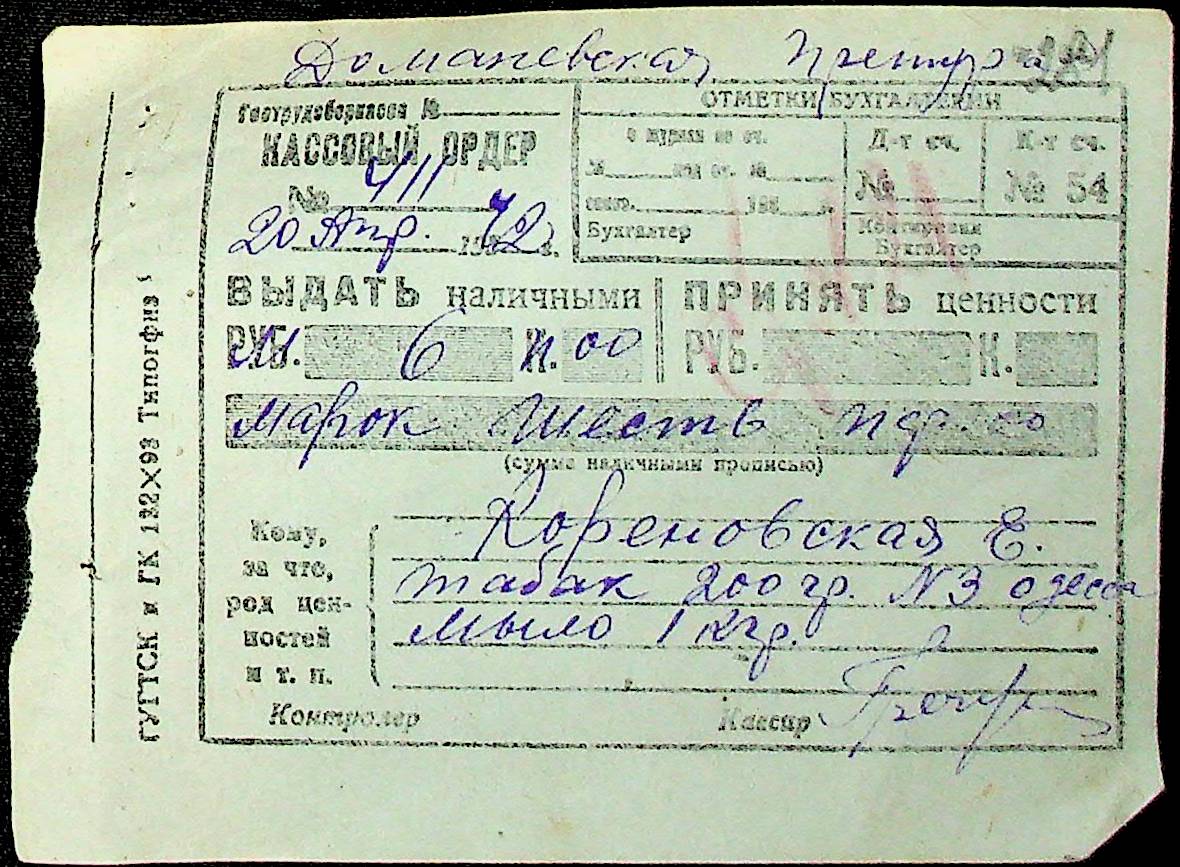 Доманевская Претура
Гострудсберкасса №
КАССОВЫЙ ОРДЕР
№ 411
20 Апр. 42 г.
ОТМЕТКИ БУХГАЛТЕРИИ
В журнал по сч.
№ под сч. №
сектр. 193 г.
Бухгалтер
Д-т сч.
№
К-т сч.
№ 54
Контировки
Бухгалтер
ВЫДАТЬ наличными
РУБ. 6 К. 00
ПРИНЯТЬ ценности
РУБ. К.
марок шесть пф. 00
(сумма наличными прописью)
Кому,
за что,
род цен-
ностей
и т. п.
Кореновская Е.
табак 200 гр. N3 одесса
мыло 1 кгр.
Контролер
Кассир
ГУГТСК и ГК 132×93 Типогфиз